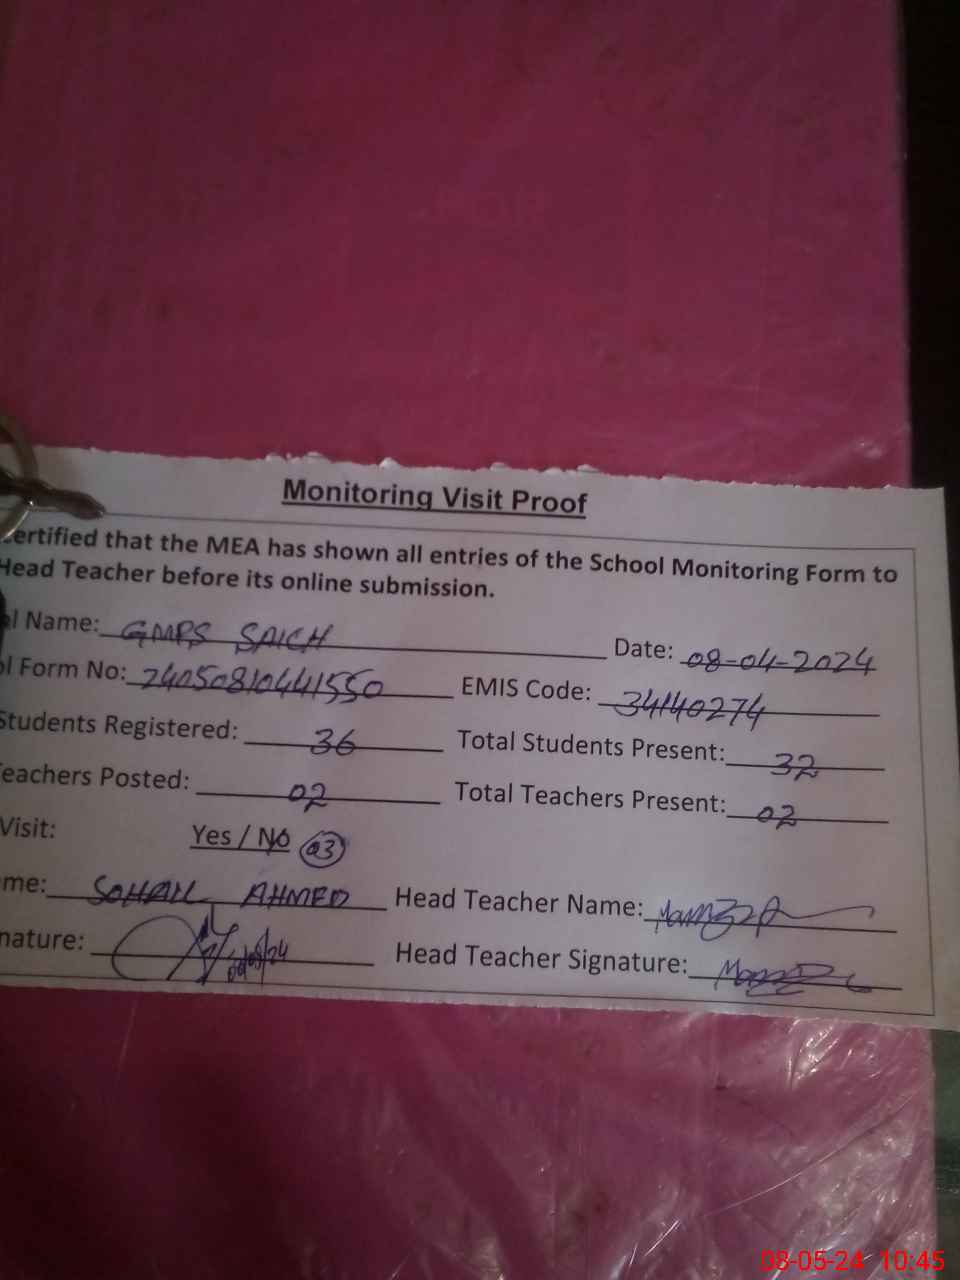 Monitoring Visit Proof
ertified that the MEA has shown all entries of the School Monitoring Form to
Head Teacher before its online submission.
ol Name: GMPS SAICH Date: 08-04-2024
ol Form No: 24050810441550 EMIS Code: 34140274
Students Registered: 36 Total Students Present: 32
eachers Posted: 02 Total Teachers Present: 02
Visit: Yes / No 03
me: SOHAIL AHMED Head Teacher Name:
nature: 08/05/24 Head Teacher Signature:
08-05-24 10:45